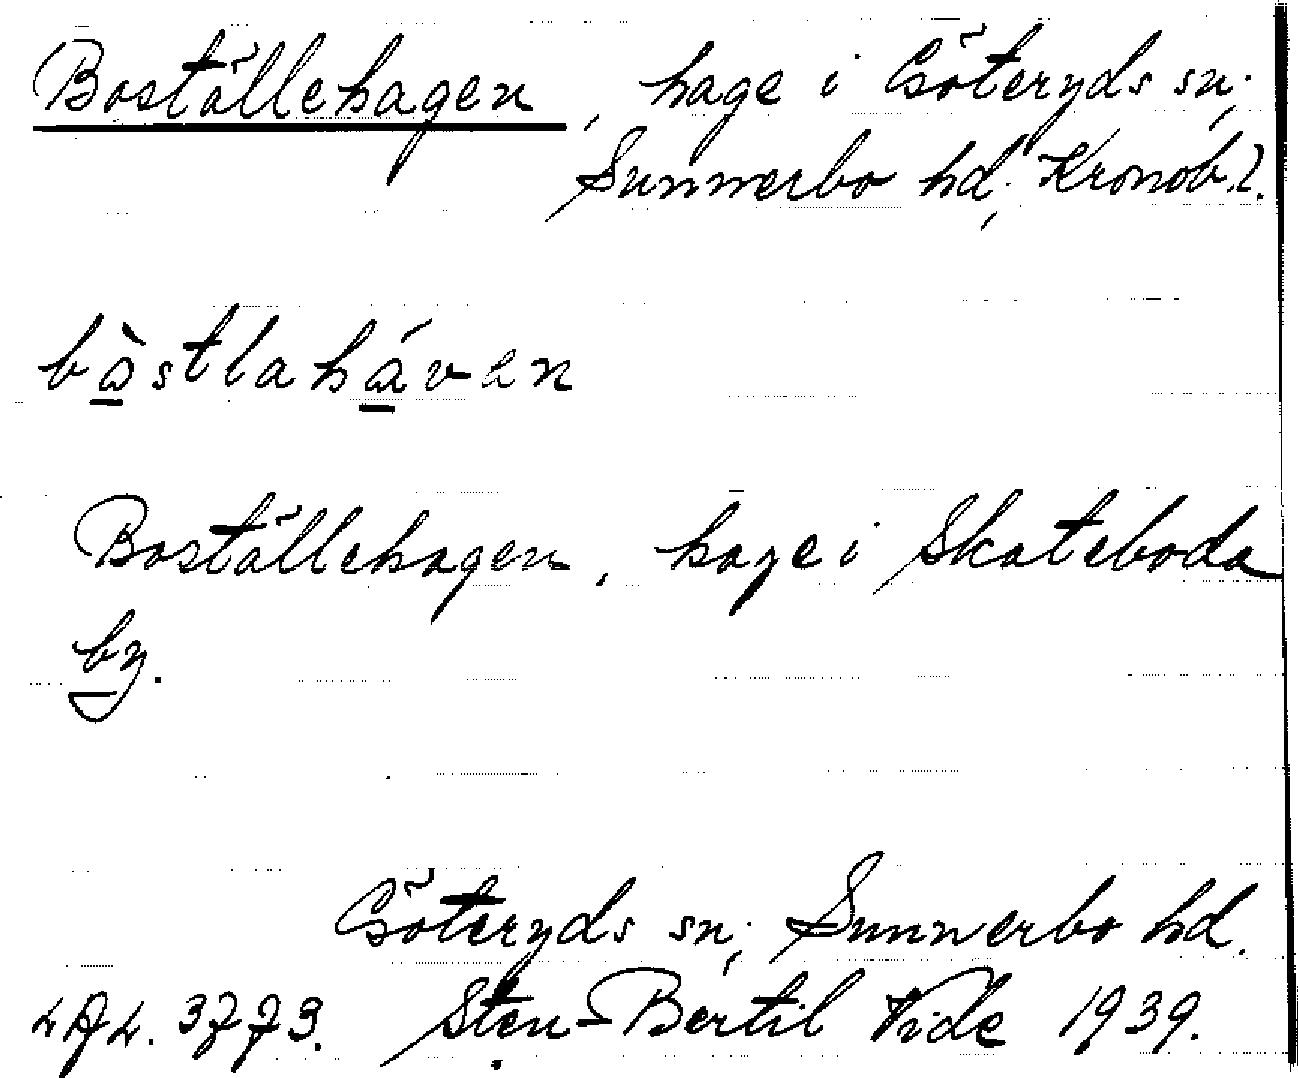 Boställehagen, hage i Göteryds sn.,
Sunnerbo hd., Kronob. l.
bòstlahávan
Boställehagen, hage i Skateboda
by.
Göteryds sn., Sunnerbo hd.
LAL. 3773. Sten-Bertil Vide 1939.